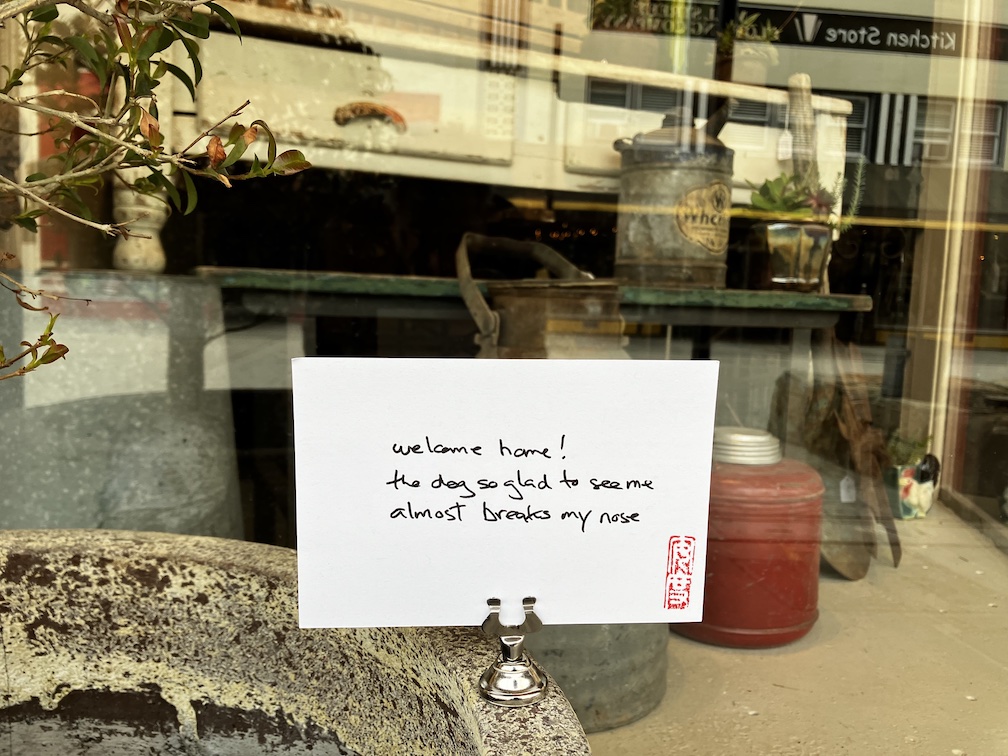 Kitchen Store
welcome home!
the dog so glad to see me
almost breaks my nose